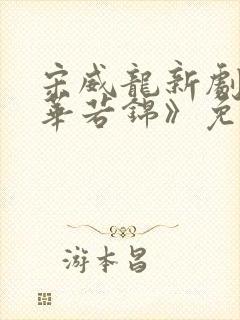 宋威龍新劇
華若錦》免
游本昌